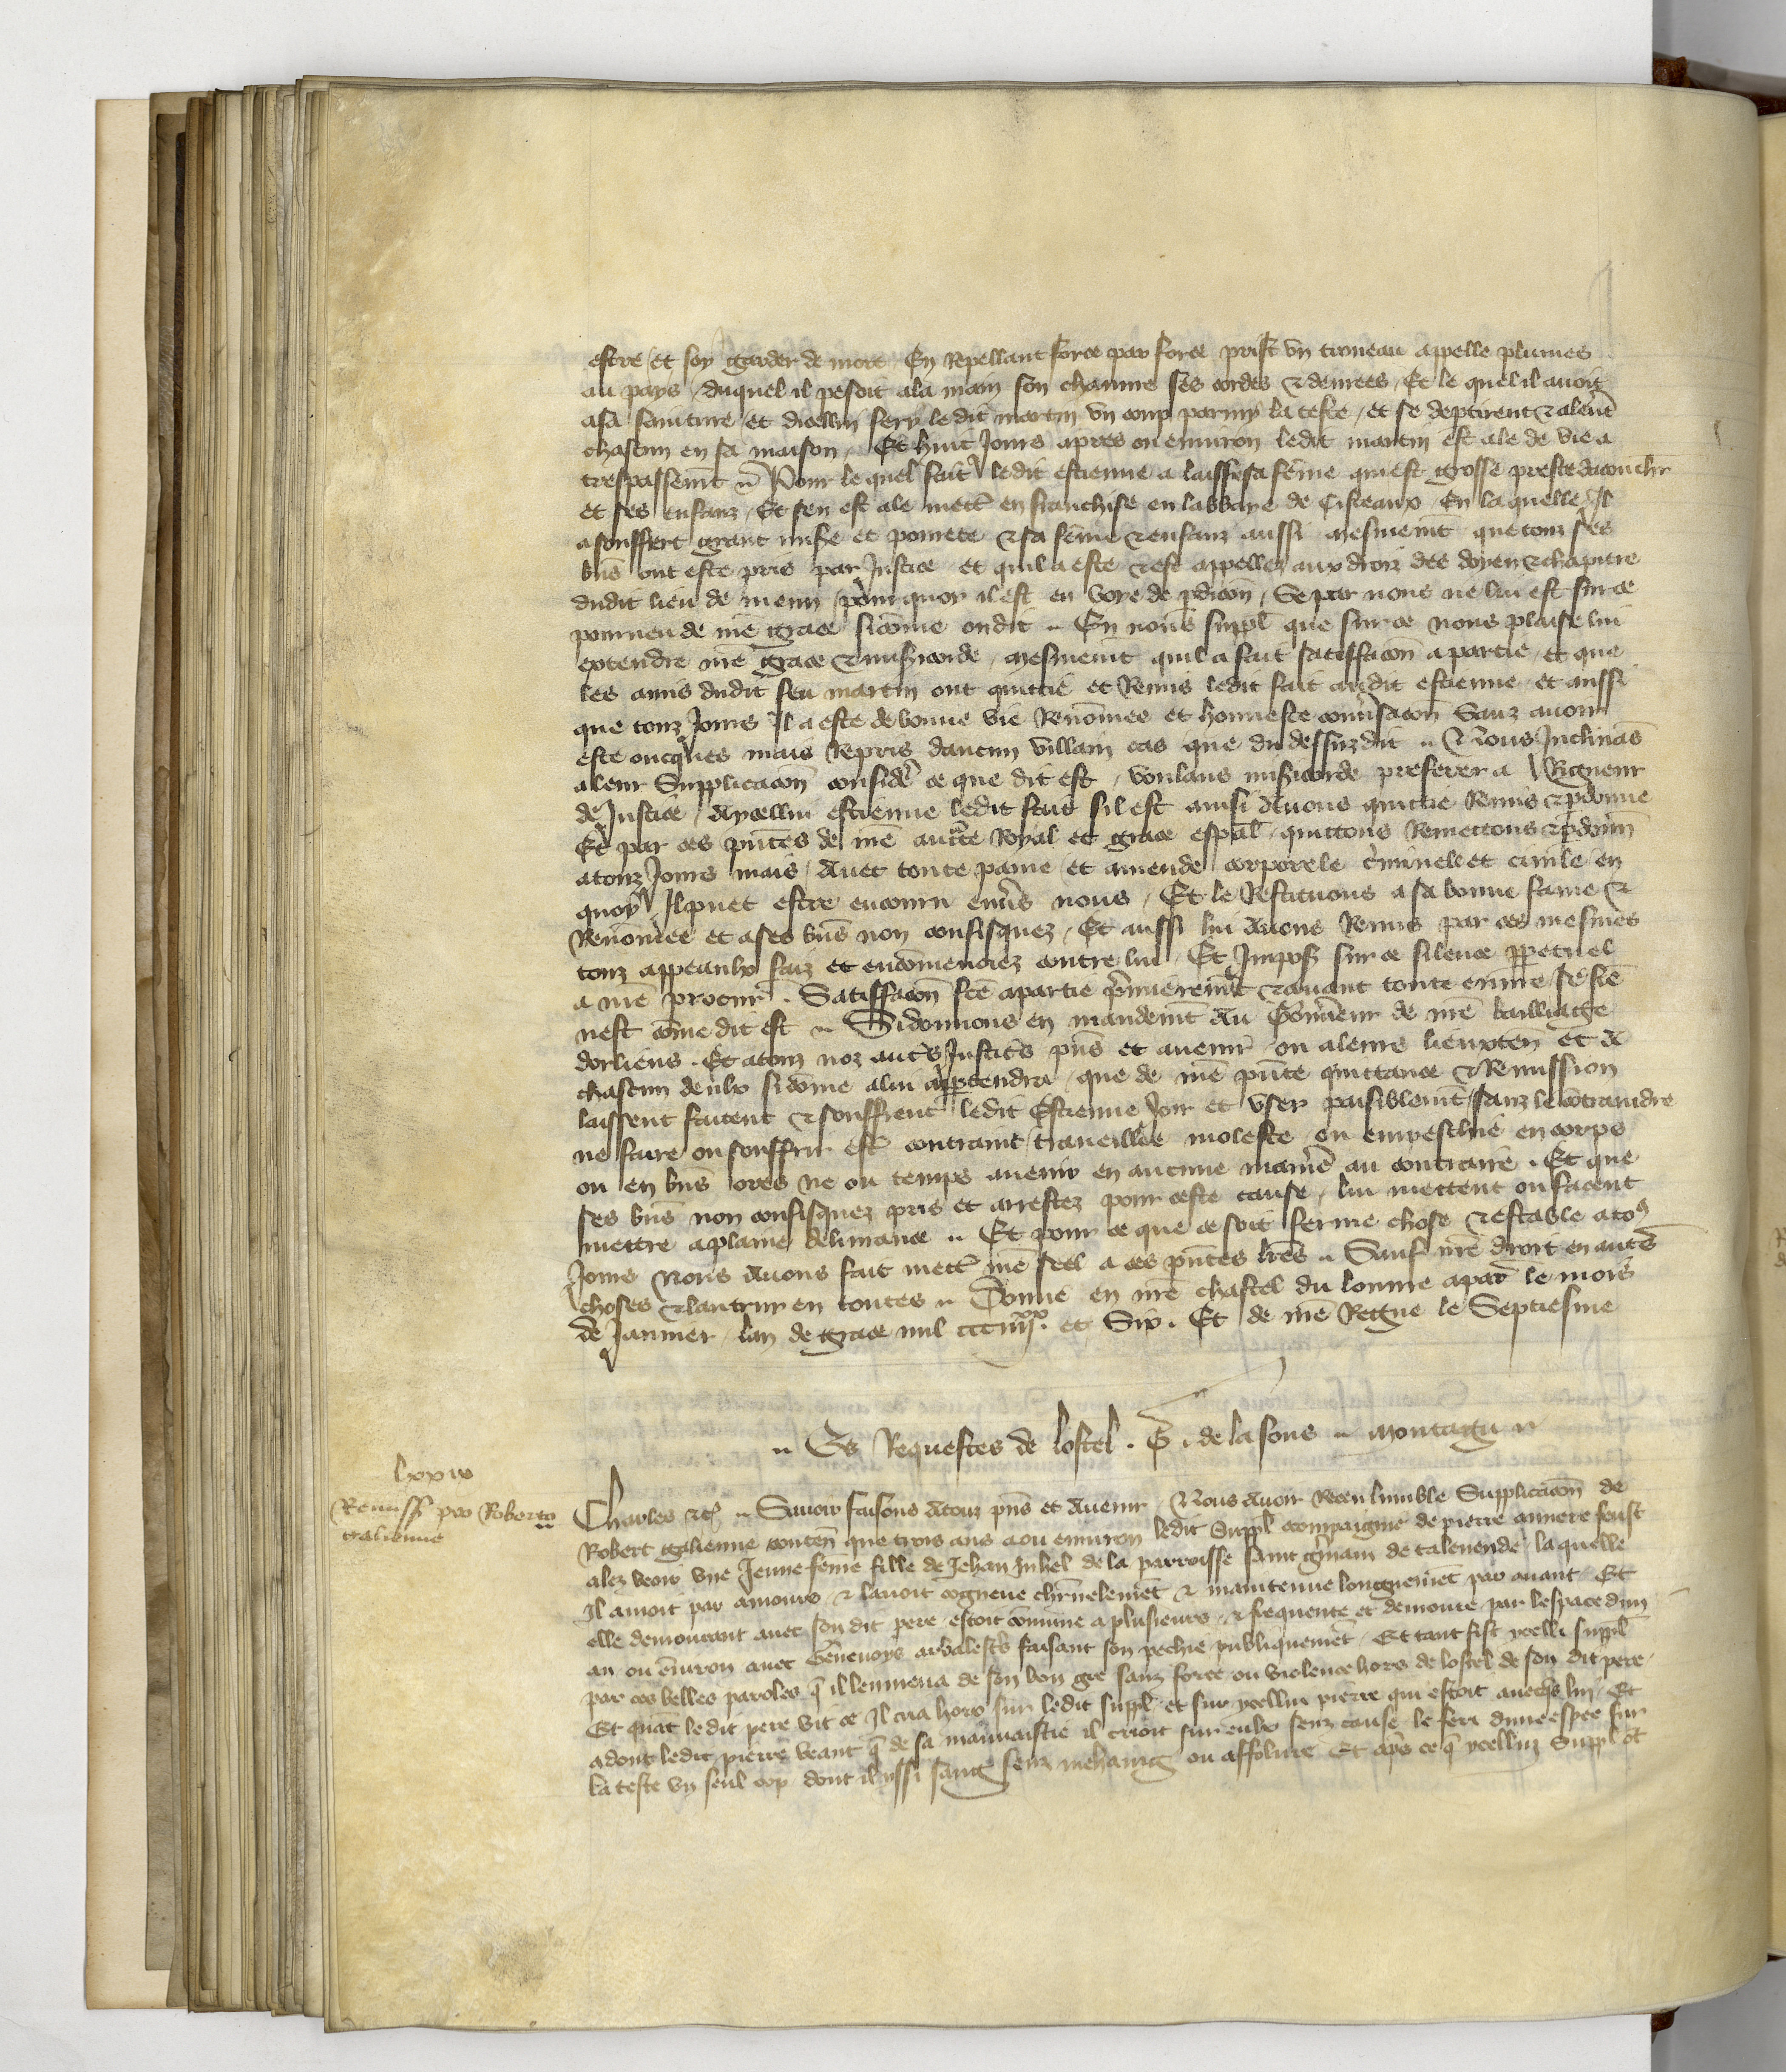 estre et soy garder de mort En repellant force par force prist vn troneau appelle plumes
au pays duquel il pesoit ala main son chanvre ses cordes & denrees Et le quel il avoit
asa sainture et dicellui fery ledit martin vn coup parmy la teste et se deptirent & alerẽt
chascun en sa maison Et huit Jours apres ou environ ledit martin est ale de vie a
trespassemẽt Pour le quel fait ledit estienne a laissie sa fẽme qui est grosse preste dacouchr
et ses enfanz Et sen est ale mettr en franchise en labbaye de Cisteaux En laquelle Il
a souffert grant misere et povrete & sa fẽme & enfanz aussi mesmemt que touz ses
biẽs ont este pris par Justice et quil a este & est appelle aux droiz des doyen & chapitre
dudit lieu de meun pour quoy il est en voye de pdicoñ Se par nous ne lui est sur ce
pourveu de nrẽ grace sicõme on dit En nous suppl que sur ce nous plaise lui
extendre nrẽ grace & misericorde mesmemt quil a fait satiffacoñ a partie et que
les amis dudit feu martin ont quittie et Remis ledit fait audit estienne et aussi
que touz Jours Il a este de bonne vie Renõmee et honneste cõnvsacoñ Sanz avoir
este oncques mais Repris daucun villain cas que du dessuzdit Nous Inclinãs
aleur Supplicacoñ consider ce que dit est voulans misericorde preferer a Rigueur
de Justice A ycellui estienne ledit fait sil est ainsi Avons quittie Remis & pdonne
Et par ces pñtes de nrẽ auctte Royal et grace espal quittons Remettons & pdonñ
atouz Jours mais Avec toute paine et amende corporele criminele et civile en
quoy Il puet estre encouru envers nous Et le Restituons a sa bonne fame &
Renõmee et a ses biẽs non confisquez Et aussi lui Avons Remis par ces mesmes
touz appeaulx faiz et encõmenciez contre lui Et Imposs sur ce silence ppetuel
a nrẽ procur Satiffacoñ fcẽ apartie premieremẽt & avant toute euvre se fcẽ
nest cõme dit est Si donnons en mandemt Au Gouverneur de nrẽ bailliage
dorliens Et atouz noz autrs Justiciers pñs et avenir ou aleurs lieuxteñ et A
chascun deulx sicõme alui apptendra que de nrẽ pñte quittance & Remission
laissent facent & seuffrent ledit Estienne Joir et vser paisiblemẽt sanz le cõtraindre
ne faire ou souffrir estr contraint traveillie moleste ou empeschie en corps
ou en biẽs ores ne ou temps avenir en aucune maniere au contraire Et que
ses biẽs non confisquez pris et arrestez pour ceste cause lui mettent ou facent
mettre aplaine delivrance Et pour ce que ce soit ferme chose & estable a tos
Jours Nous Avons fait mettr nrẽ seel a ces pñtes lrẽs Sauf nrẽ droit en autrs
choses & lautruy en toutes Donne en nrẽ chastel du louvre a par le mois
de Janvier lan de grace mil ccciiijxx. et Six. Et de nrẽ Regne le Septiesme
Es Requestes de lostel . G. de la sons montagu
lxxiiij
Remissi pro Roberto
galienne
Charles &c Savoir faisons A touz pñs et Avenir Nous Avoir Receu lumble Supplicacoñ de
Robert galienne conteñ que trois ans a ou environ ledit Suppl acompaignie de pierre annere feust
alez veoir vne Jeune fẽme fille de Jehan Juhel de la parroisse saint gmain de talevende laquelle
Il amoit par amours & lavoit cogneue chrnelemẽt & maintenue longuemẽt par avant Et
elle demourant avec son dit pere estoit cõmune a plusieurs & frequente et demoure par lespace dun
an ou environ avec Genevoys arbalestrs faisant son pechie publiquemẽt Et tant fist ycelli suppl
par ces belles paroles q il lenmena de son bon gre sanz force ou violence hors de lostel de son dit pere
Et quãt le dit pere vit ce Il cria horo sur ledit suppl et sur ycellui pierre qui estoit avecqs lui Et
adont ledit pierre veant q de sa mauvaistie il crioit sur eulx senz cause le feri dune espee sur
la teste vn seul cop dont il yssi sang senz mehaing ou affoleure Et aps ce q ycellui Suppl ot